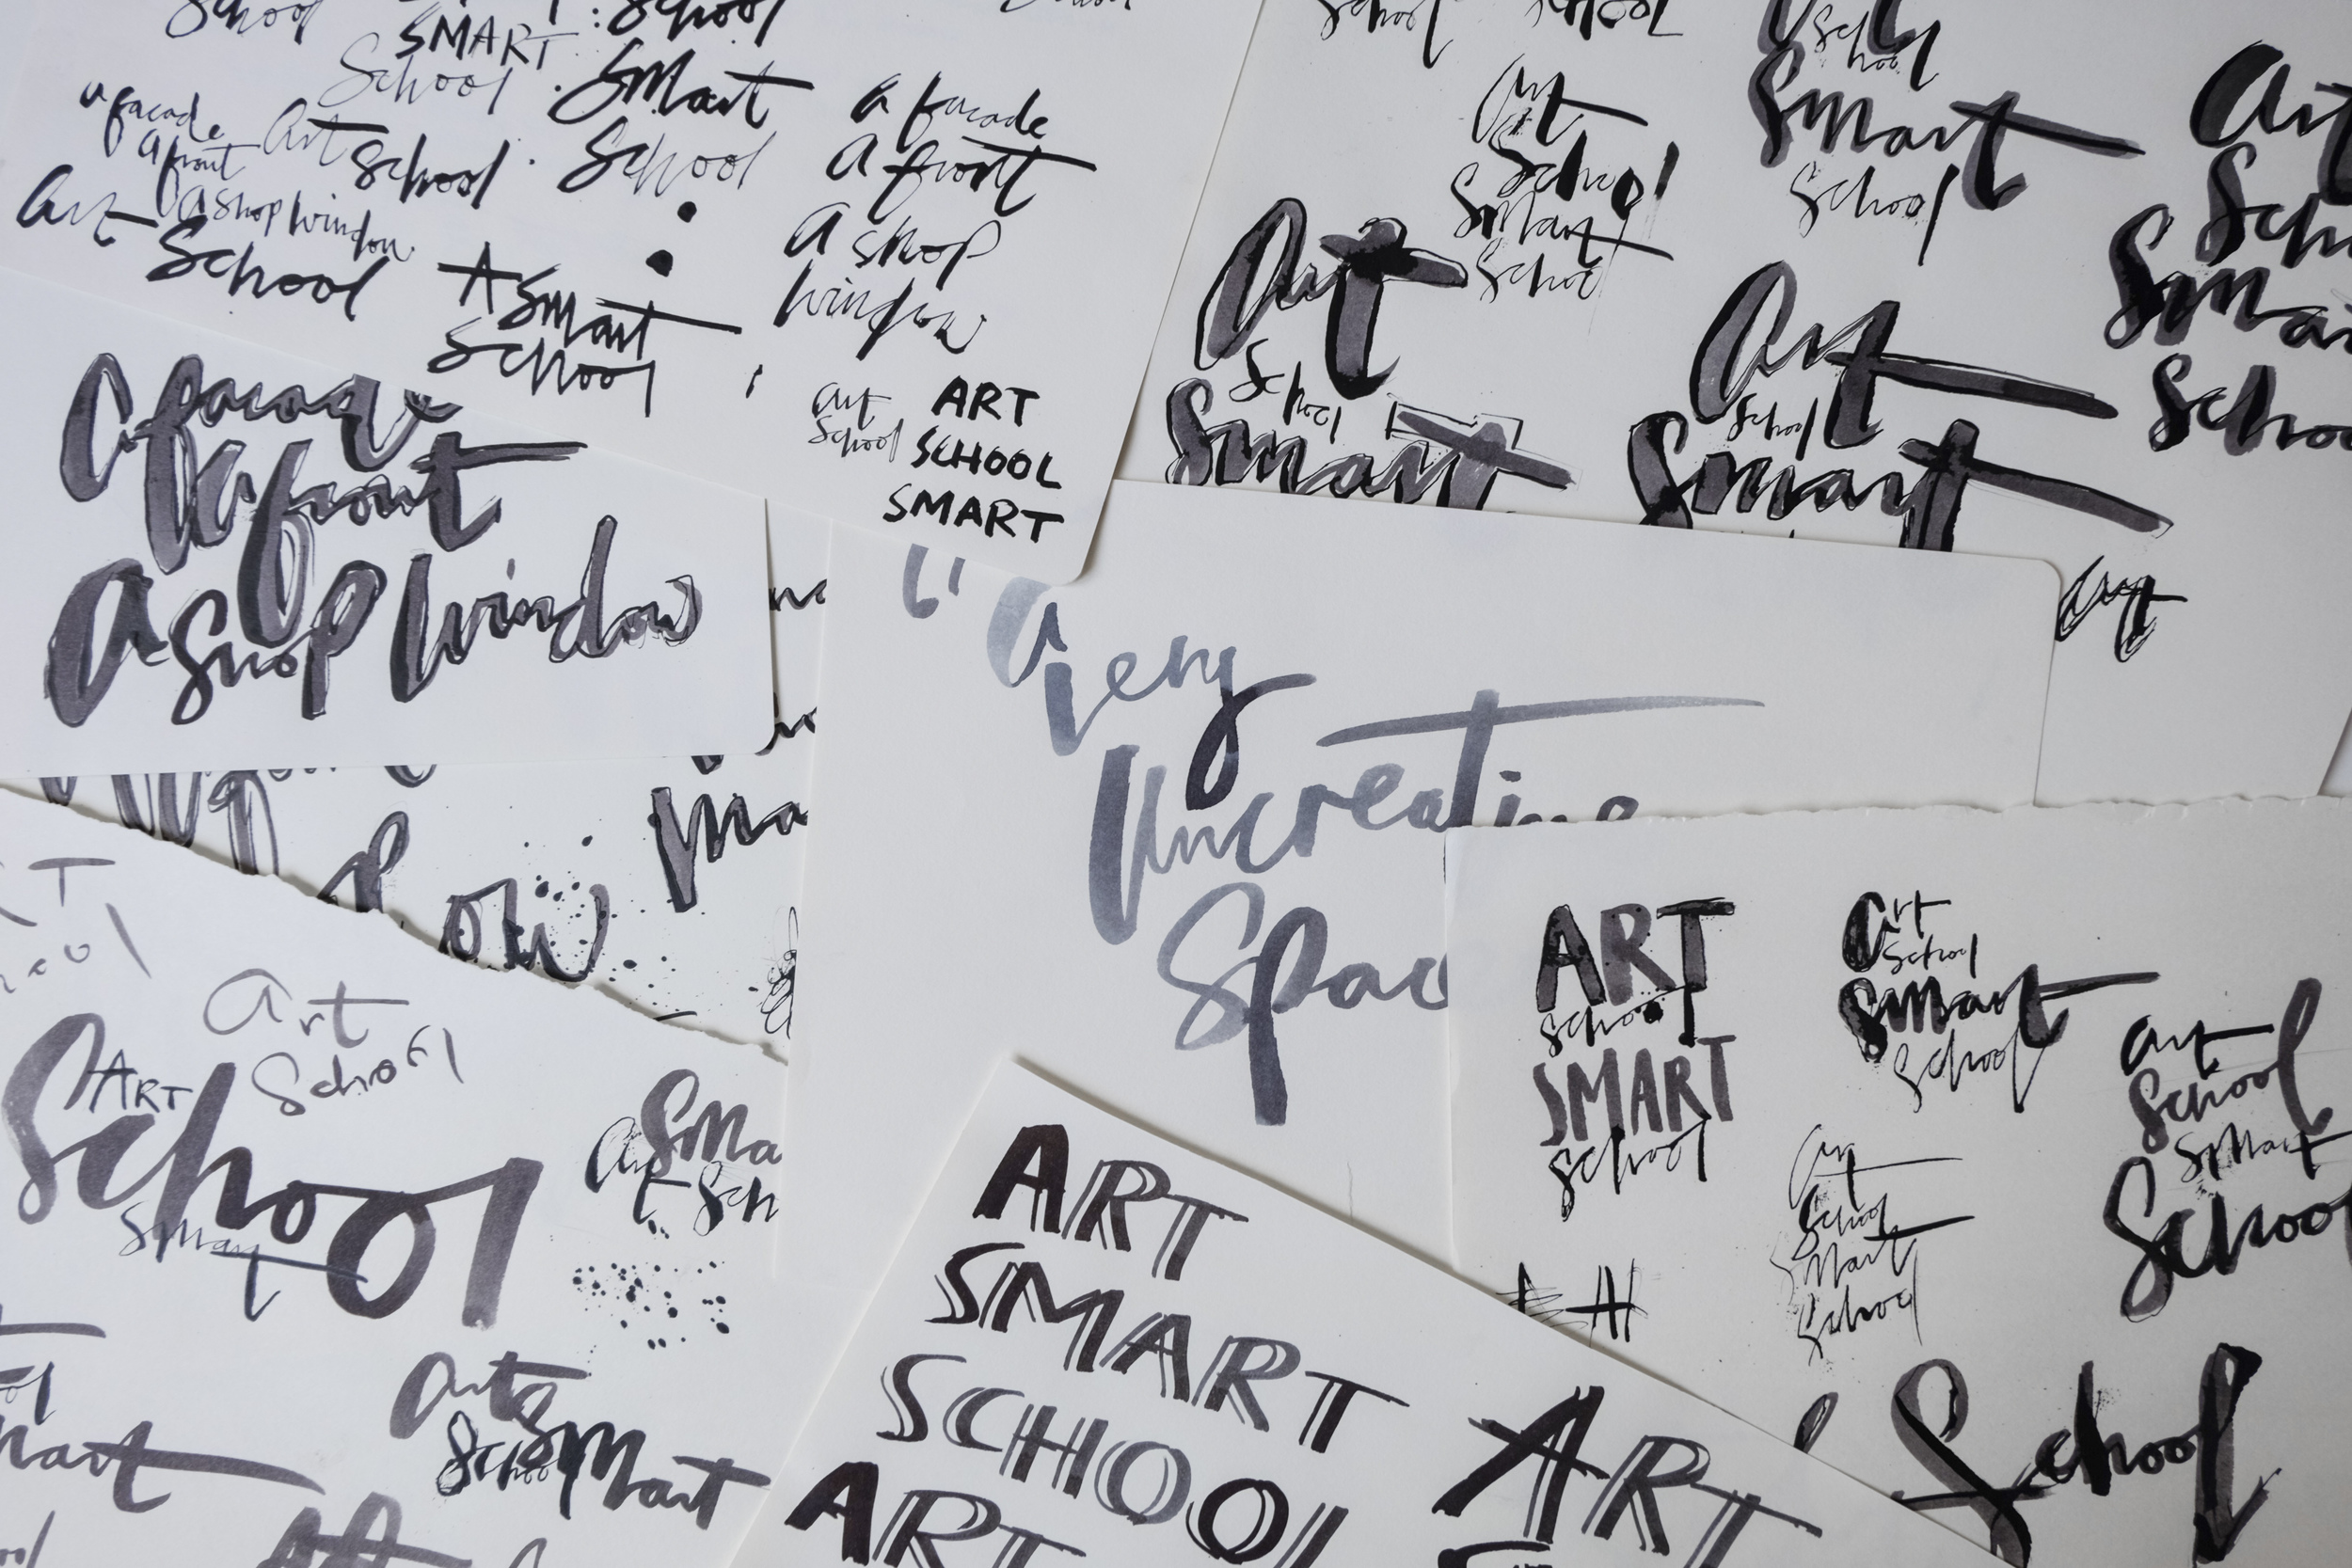 School
SMART
School
School
Smart
School
School
a facade
a front
a shop window
Art
School
Art
School
A Smart
School
a facade
a front
a shop
window
art
School
ART
SCHOOL
SMART
a facade
a front
a shop window
School
School
Art
School
Smart
School
School
Smart
School
Art
School
Smart
Art
School
Smart
Art
Sch
Smar
School
Art
a very
Uncreative
Spac
ma
ow
Art
School
ART
School
Smart
Sma
Art
Sch
Art
School
Smart
ART
SMART
SCHOOL
ART
ART
ART
School
SMART
School
Art
School
Smart
School
Art
School
Smart
School
Art
School
Smart
School
School